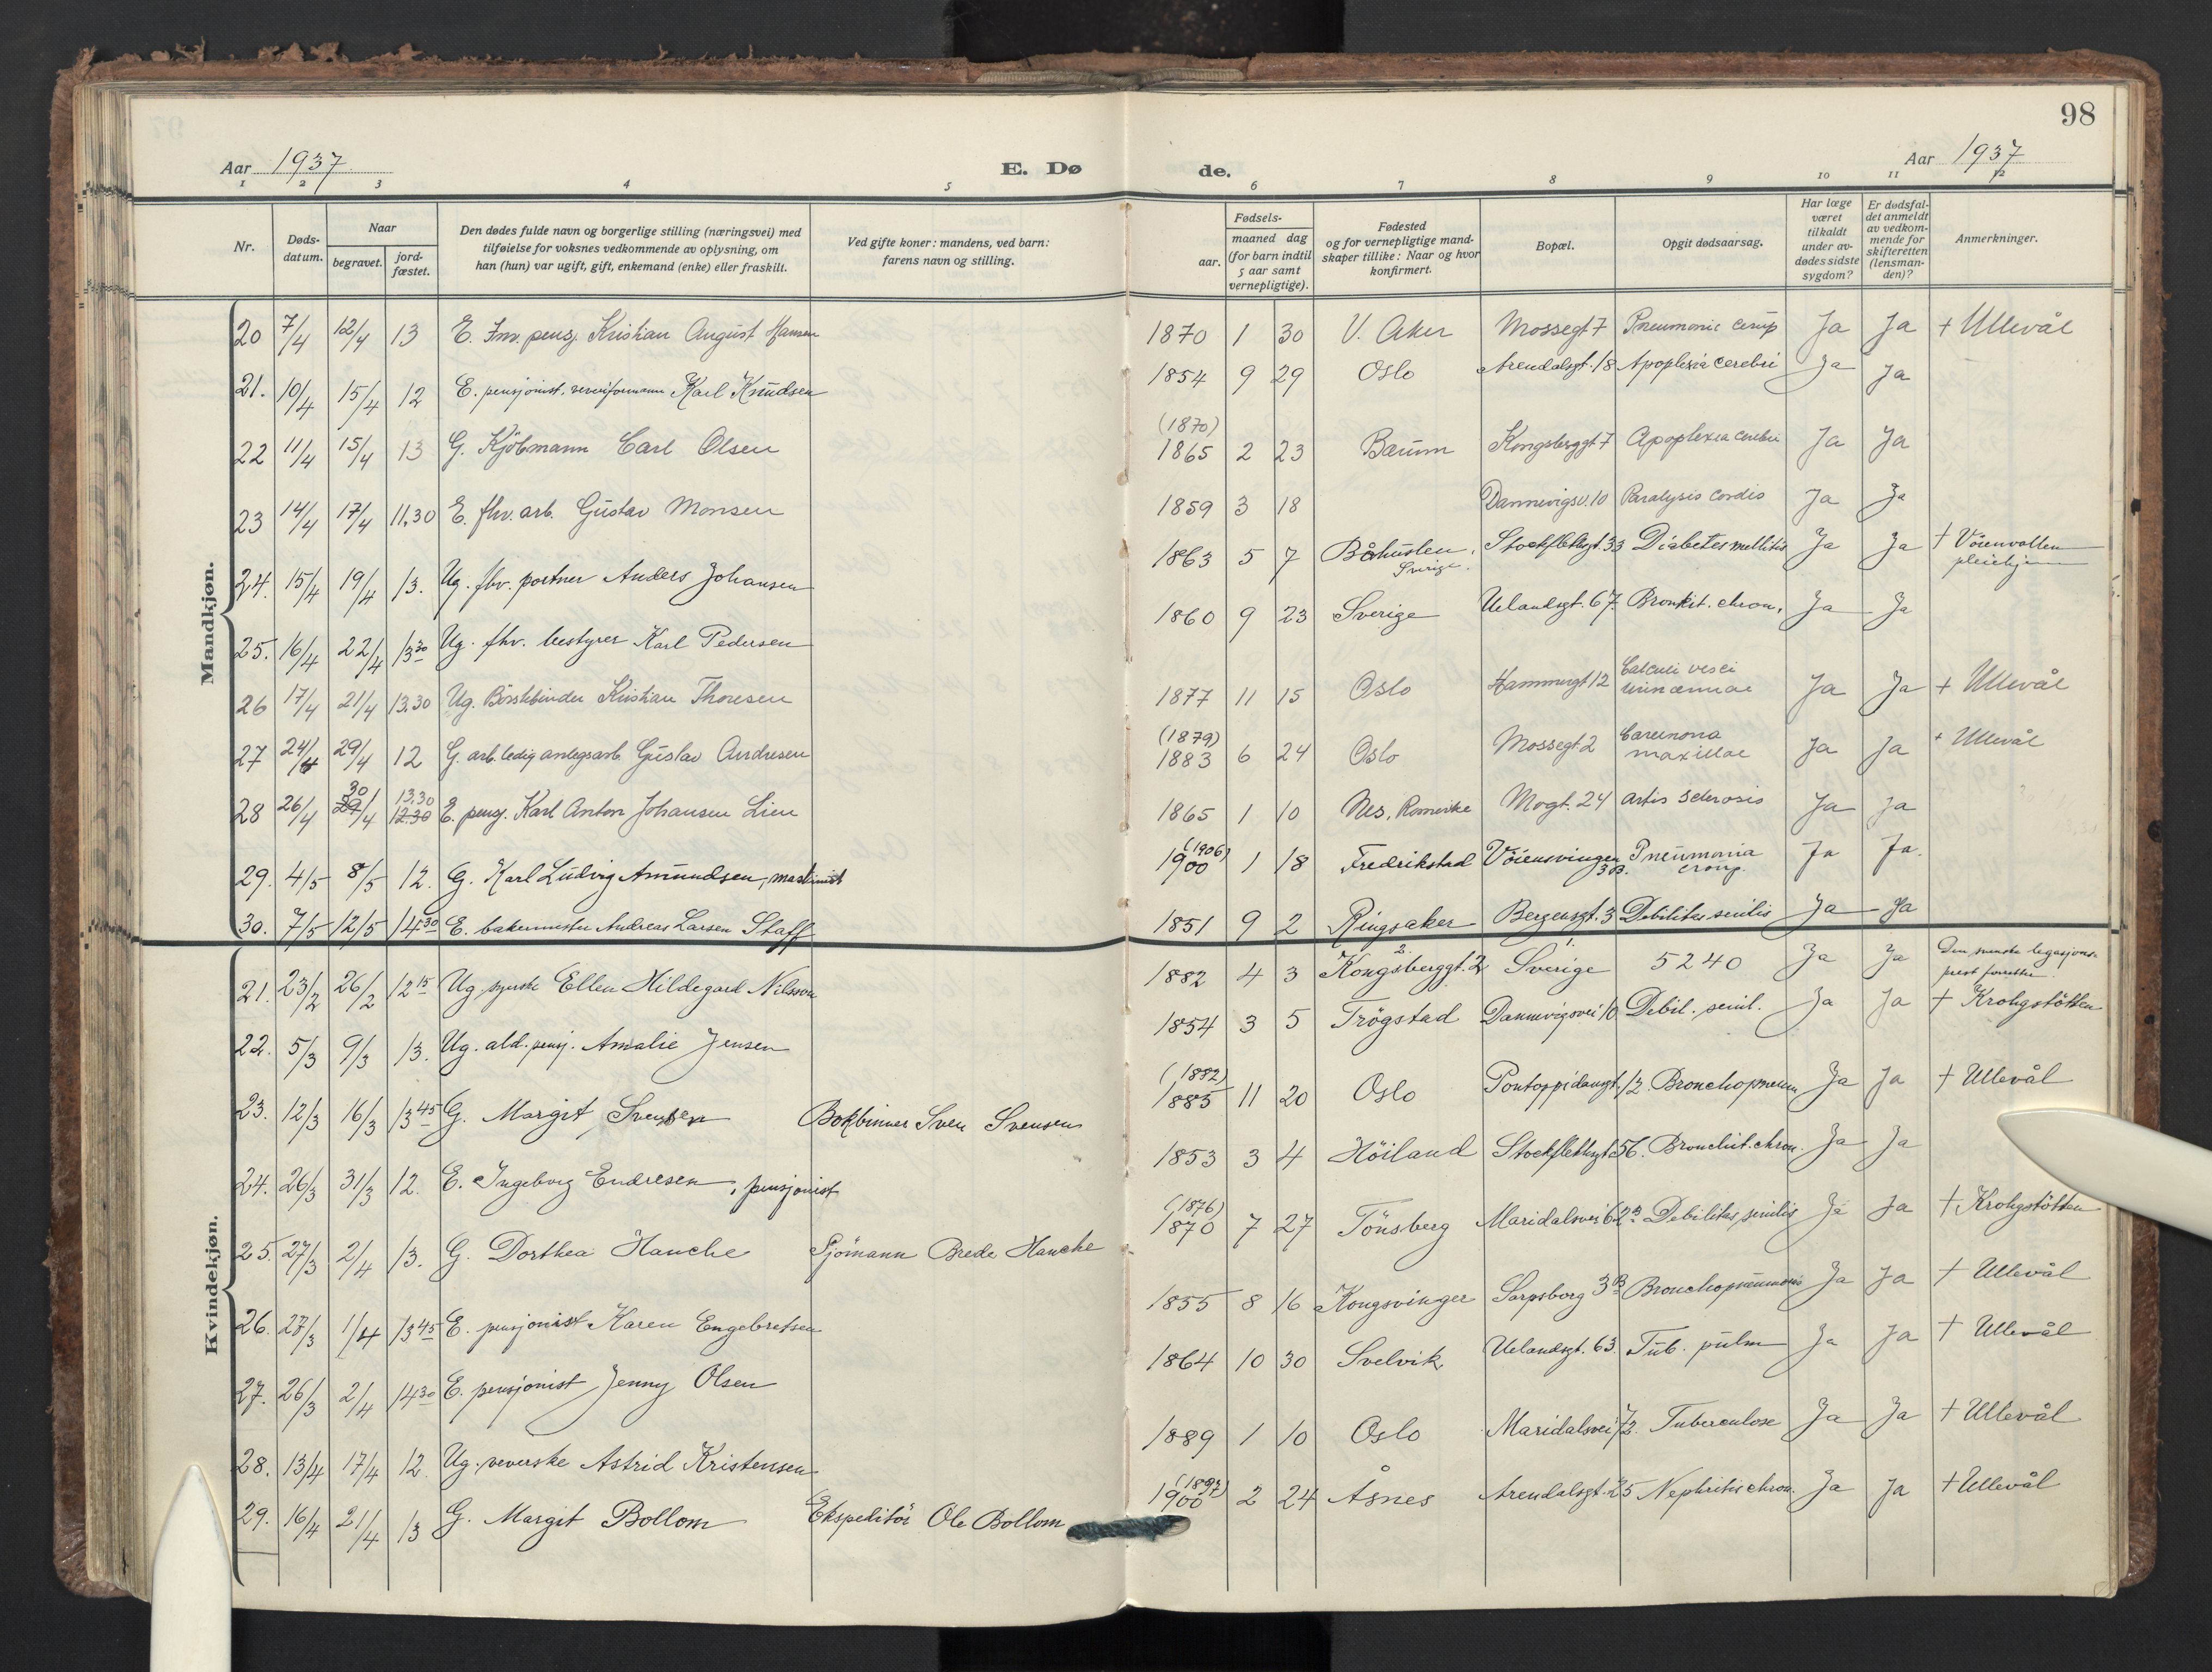 98
Aar 1937
E. Dø
de.
Aar 1937
1 2 3 4 5 6 7 8 9 10 11 12
Nr.
Døds-
datum.
Naar
begravet.
jord-
fæstet.
Den dødes fulde navn og borgerlige stilling (næringsvei) med
tilføielse for voksnes vedkommende av oplysning, om
han (hun) var ugift, gift, enkemand (enke) eller fraskilt.
Ved gifte koner: mandens, ved barn:
farens navn og stilling.
Fødsels-
aar.
maaned dag
(for barn indtil
5 aar samt
vernepligtige).
Fødested
og for vernepligtige mand-
skaper tillike: Naar og hvor
konfirmert.
Bopæl.
Opgit dødsaarsag.
Har læge
været
tilkaldt
under av-
dødes sidste
sygdom?
Er dødsfal-
det anmeldt
av vedkom-
mende for
skifteretten
(lensman-
den)?
Anmerkninger.
Mandkjøn.
20 7/4 12/4 13 E. Inv. pensj. Kristian August Hansen 1870 1 30 V. Aker Mossegt 7 Pneumonic crup Ja Ja + Ullevål
21. 10/4 15/4 12 E. pensjonist, Karl Knudsen 1854 9 29 Oslo Arendalsgt. 18 Apoplexia cerebri Ja Ja
22 11/4 15/4 13 G. Kjöbmann Carl Olsen (1870) 1865 2 23 Bærum Kongsberggt 7 Apoplexia cerebri Ja Ja
23 14/4 17/4 11,30 E. fhv. arb. Gustav Monsen 1859 3 18 Dannevigsv. 10 Paralysis cordis Ja Ja
24. 15/4 19/4 13. Ug. fhv. portner Anders Johansen 1863 5 7 Båhuslen, Sverige. Stockflethsgt. 33 Diabetes mellitis Ja Ja + Vöienvollen pleiehjem
25. 16/4 22/4 13 30 Ug. fhv. bestyrer Karl Pedersen 1860 9 23 Sverige Uelandsgt. 67 Bronkit. chron. Ja Ja
26 17/4 21/4 13,30 Ug. Börstebinder Kristian Thoresen 1877 11 15 Oslo Hammergt 12 Calculi vesci Ja Ja + Ullevål
27 24/4 29/4 12 G. arb. ledig anlegsarb. Gustav Andresen (1879) 1883 6 24 Oslo Mossegt 2 Carcinoma maxillae Ja Ja + Ullevål
28 26/4 30 29/4 13.30 12.30 E. pensj. Karl Anton Johansen Lien 1865 1 10 Nes, Romerike Mogt. 24 Artis sclerosis Ja Ja
29. 4/5 8/5 12. G. Karl Ludvig Amundsen, maskinist (1906) 1900 1 18 Fredrikstad Vöiensvingen 3B. Pneumonia croup. Ja Ja.
30. 7/5 12/5 14 30 E. bakermester Andreas Larsen Staff 1851 9 2 Ringsaker Bergensgt. 3 Debilitas senilis Ja Ja
Kvindekjøn.
21. 23/2 26/2 12 15 Ug. syerske Ellen Hildegard Nilsson 1882 4 3 2. Kongsberggt. 2 1. Sverige 5240 Ja Ja Den svenske legasjons- prest forrettet.
22. 5/3 9/3 13. Ug. ald. pensj. Amalie Jensen 1854 3 5 Trögstad Dannevigsvei 10 Debil. senil. Ja Ja + Krohgstötten
23. 12/3 16/3 13 45 G. Margit Svensen Bokbinner Sven Svensen (1882) 1885 11 20 Oslo Pontoppidansgt. 12. Bronchopneum. Ja Ja + Ullevål
24. 26/3 31/3 12. E. Ingeborg Endresen, pensjonist 1853 3 4 Höiland Stockflethsgt 56. Bronchit. chron. Ja Ja
25. 27/3 2/4 13. G. Dorthea Hanche Sjömann Brede Hanche (1876) 1870 7 27 Tönsberg Maridalsvei 62 B Debilitas senilis Ja Ja + Krohgstötten
26. 27/3 1/4 13 45 E. pensjonist Karen Engebretsen 1855 8 16 Kongsvinger Sarpsborg 3 B Bronchopneumonia Ja Ja + Ullevål
27. 26/3 2/4 14 30 E. pensjonist Jenny Olsen 1864 10 30 Svelvik Uelandsgt. 63. Tub. pulm Ja Ja + Ullevål
28. 13/4 17/4 12. Ug. veverske Astrid Kristensen 1889 1 10 Oslo Maridalsvei 72. Tuberculose Ja Ja + Ullevål
29. 16/4 21/4 13 G. Margit Bollom Ekspeditör Ole Bollom (1897) 1900 2 24 Åsnes Arendalsgt. 25 Nephritis chron. Ja Ja + Ullevål